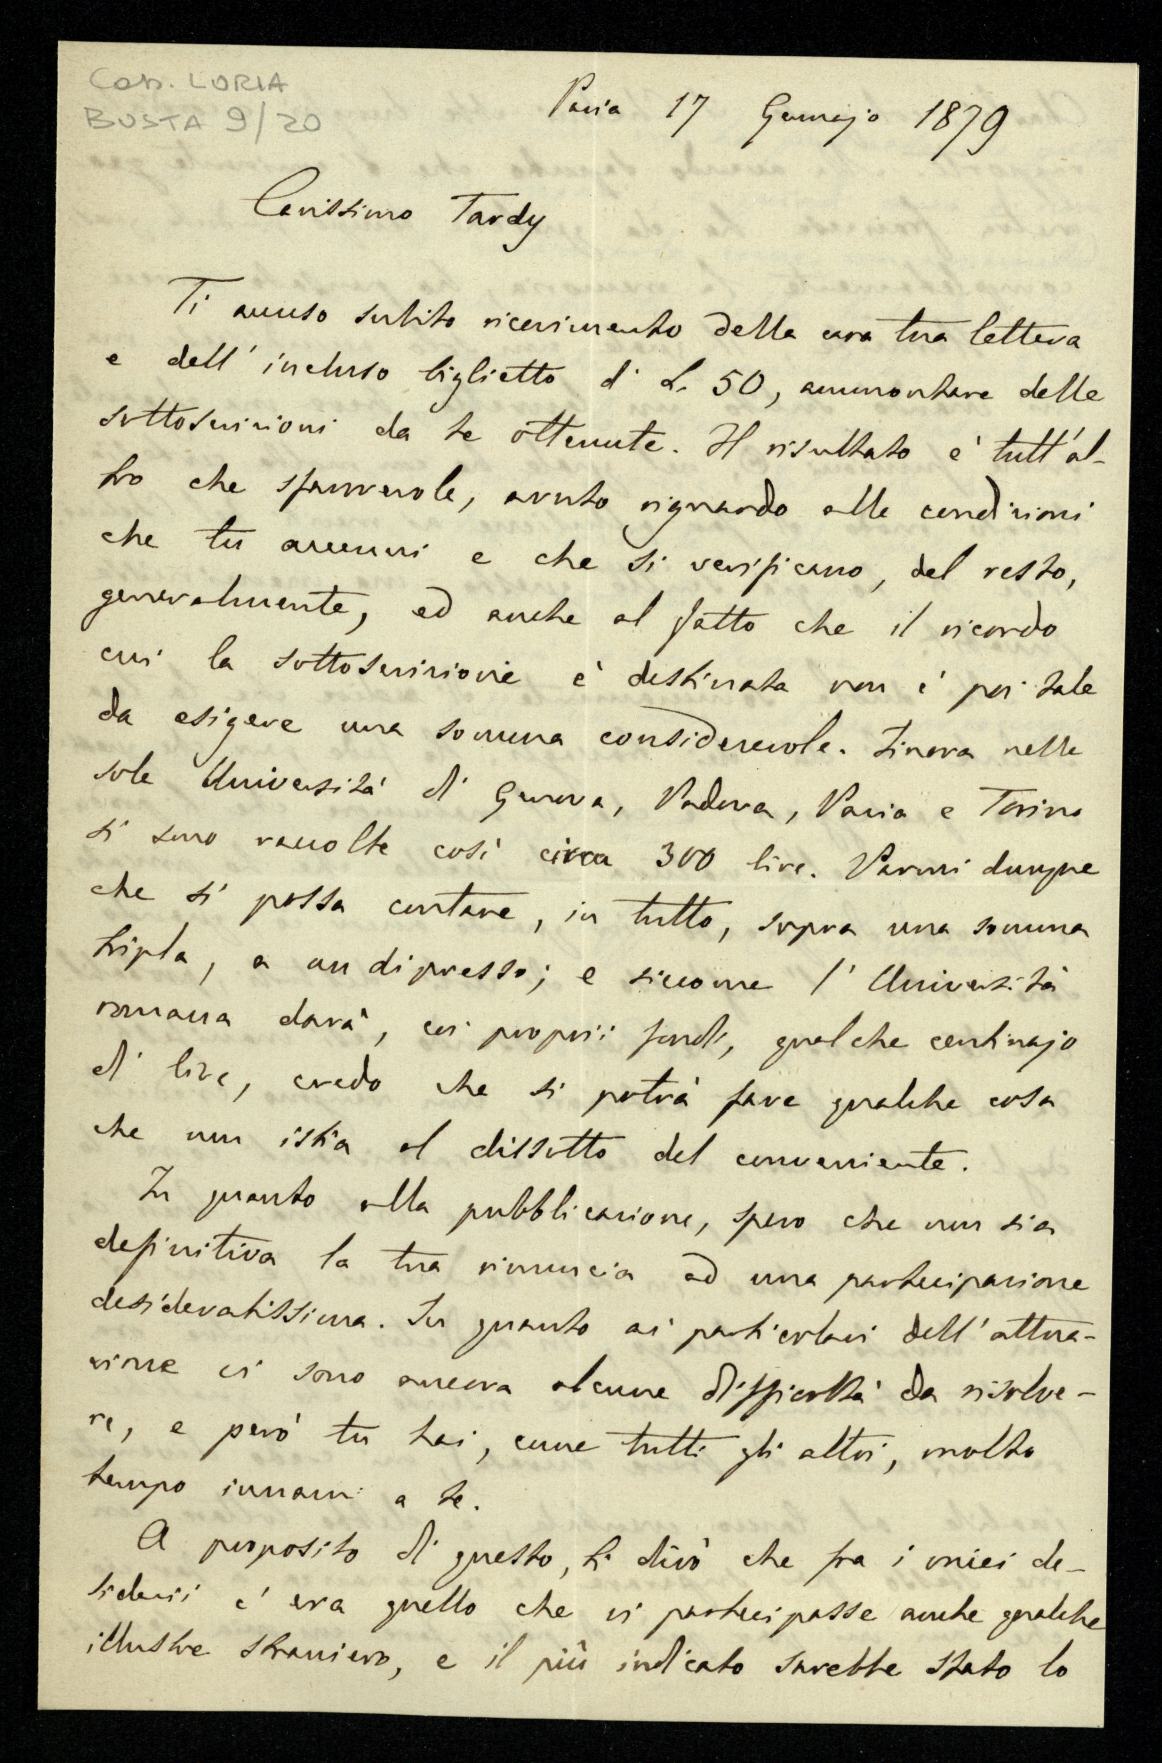 Cass. LORIA
BUSTA 9/20
Pavia 17 Gennajo 1879
Carissimo Tardy
Ti accuso subito ricevimento della cara tua lettera
e dell' incluso biglietto di L. 50, ammontare delle
sottoscrizioni da te ottenute. Il risultato è tutt'al-
tro che sfavorevole, avuto riguardo alle condizioni
che tu accenni e che si verificano, del resto,
generalmente, ed anche al fatto che il ricordo
cui la sottoscrizione è destinata non è poi tale
da esigere una somma considerevole. Finora nelle
sole Università di Genova, Padova, Pavia e Torino
si sono raccolte così circa 300 lire. Parmi dunque
che si possa contare, in tutto, sopra una somma
tripla, a un dipresso; e siccome l' Università
romana darà, coi proprii fondi, qualche centinajo
di lire, credo che si potrà fare qualche cosa
che non istia al dissotto del conveniente.
In quanto alla pubblicazione, spero che non sia
definitiva la tua rinuncia ad una partecipazione
desideratissima. In quanto ai particolari dell' attua-
zione ci sono ancora alcune difficoltà da risolve-
re, e però tu hai, come tutti gli altri, molto
tempo innanzi a te.
A proposito di questo, ti dirò che fra i miei de-
siderii c' era quello che vi partecipasse anche qualche
illustre straniero, e il più indicato sarebbe stato lo